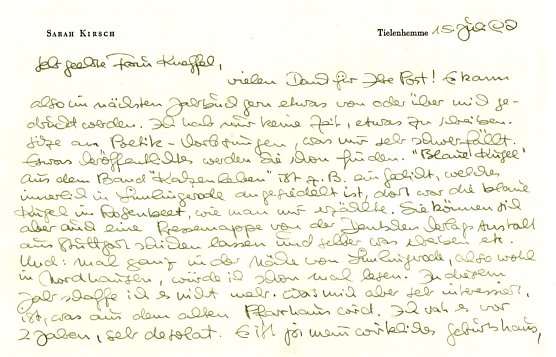 SARAH KIRSCH Tielenhemme 15. Juli
Sehr geehrte Frau Kneffel,
vielen Dank für Ihre Post! Es kann
also im nächsten Jahrbuch gern etwas von oder über mich ge-
druckt werden. Ich hab nur keine Zeit, etwas zu schreiben.
Sitze an Poetik-Vorlesungen, was mir sehr schwerfällt.
Etwas Veröffentlichtes werden Sie schon finden. "Blaue Kugel"
aus dem Band "Katzenleben" ist z. B. ein Gedicht, welches
innerlich in Limlingerode angesiedelt ist, dort war die blaue
Kugel im Rosenbeet, wie man mir erzählte. Sie können sich
aber auch eine Pressemappe von der Deutschen Verlags Anstalt
aus Stuttgart schicken lassen und selber was schreiben etc.
Und: mal ganz in der Nähe von Limlingerode, also wohl
in Nordhausen, würde ich schon mal lesen. In diesem
Jahr schaffe ich es nicht mehr. Was mich aber sehr interessiert,
ist, was aus dem alten Pfarrhaus wird. Ich sah es vor
2 Jahren, sehr desolat. Es ist ja mein wirkliches Geburtshaus,